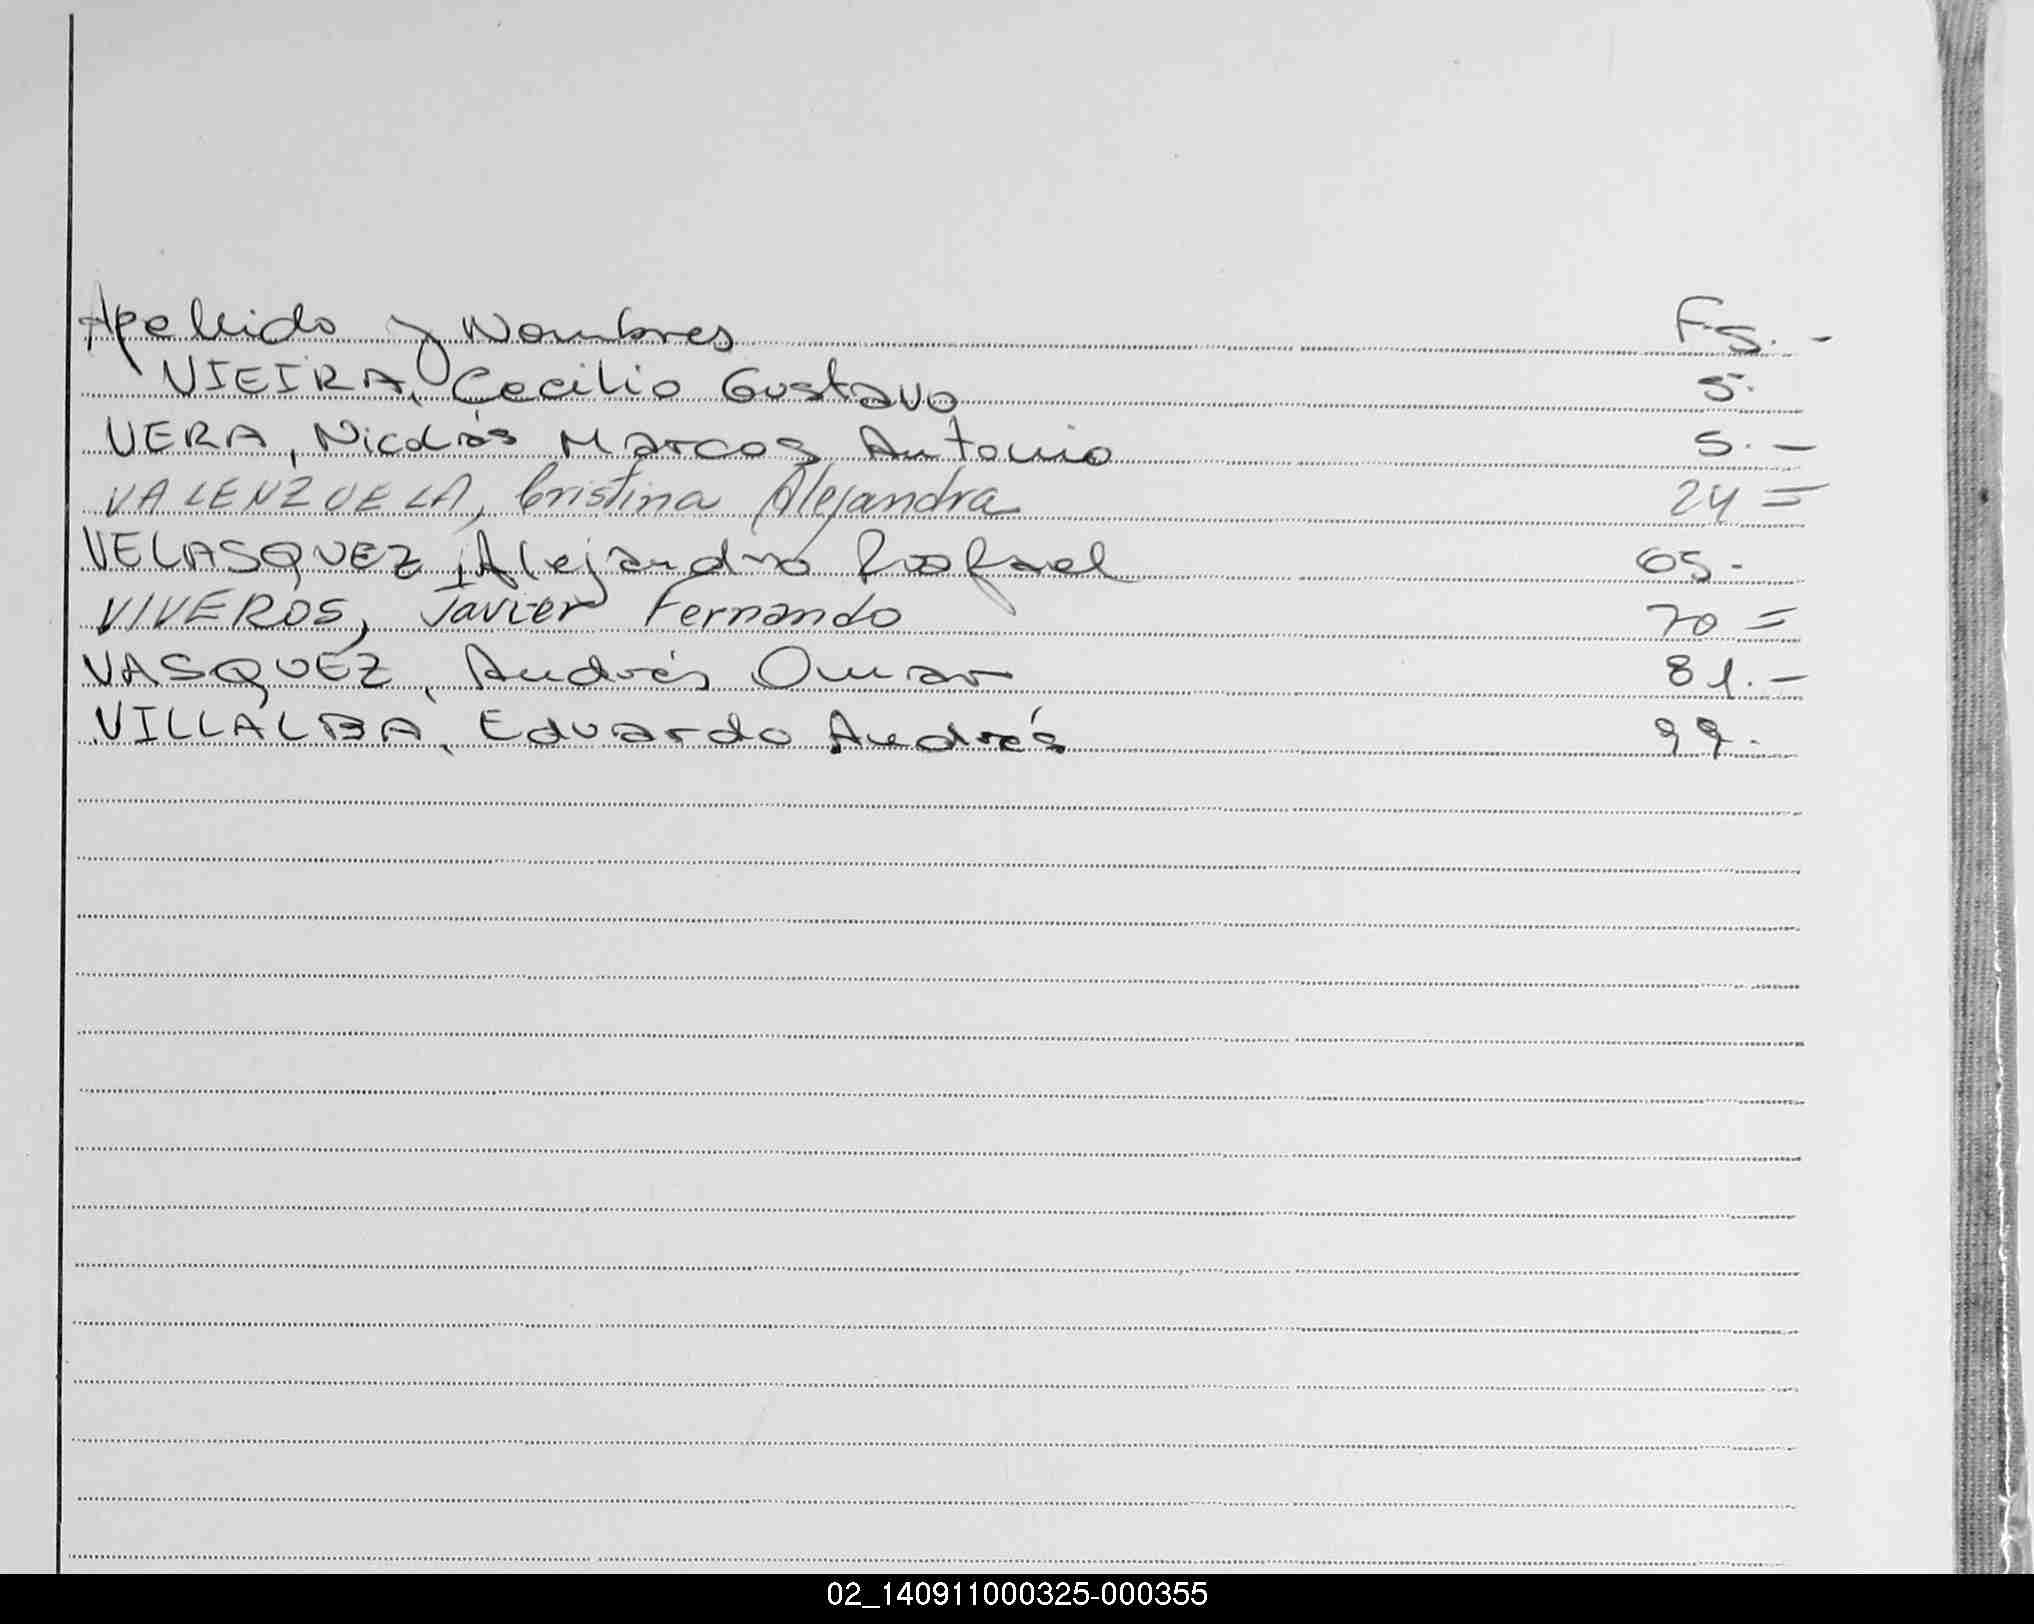 Apellido y Nombres Fs. -
VIEIRA, Cecilio Gustavo 5.
VERA, Nicolás Marcos Antonio 5. -
VALENZUELA, Cristina Alejandra 24 =
VELASQUEZ, Alejandro Rafael 65. -
VIVEROS, Javier Fernando 70 =
VASQUEZ, Andrés Omar 81. -
VILLALBA, Eduardo Andrés 99. -
02_140911000325-000355